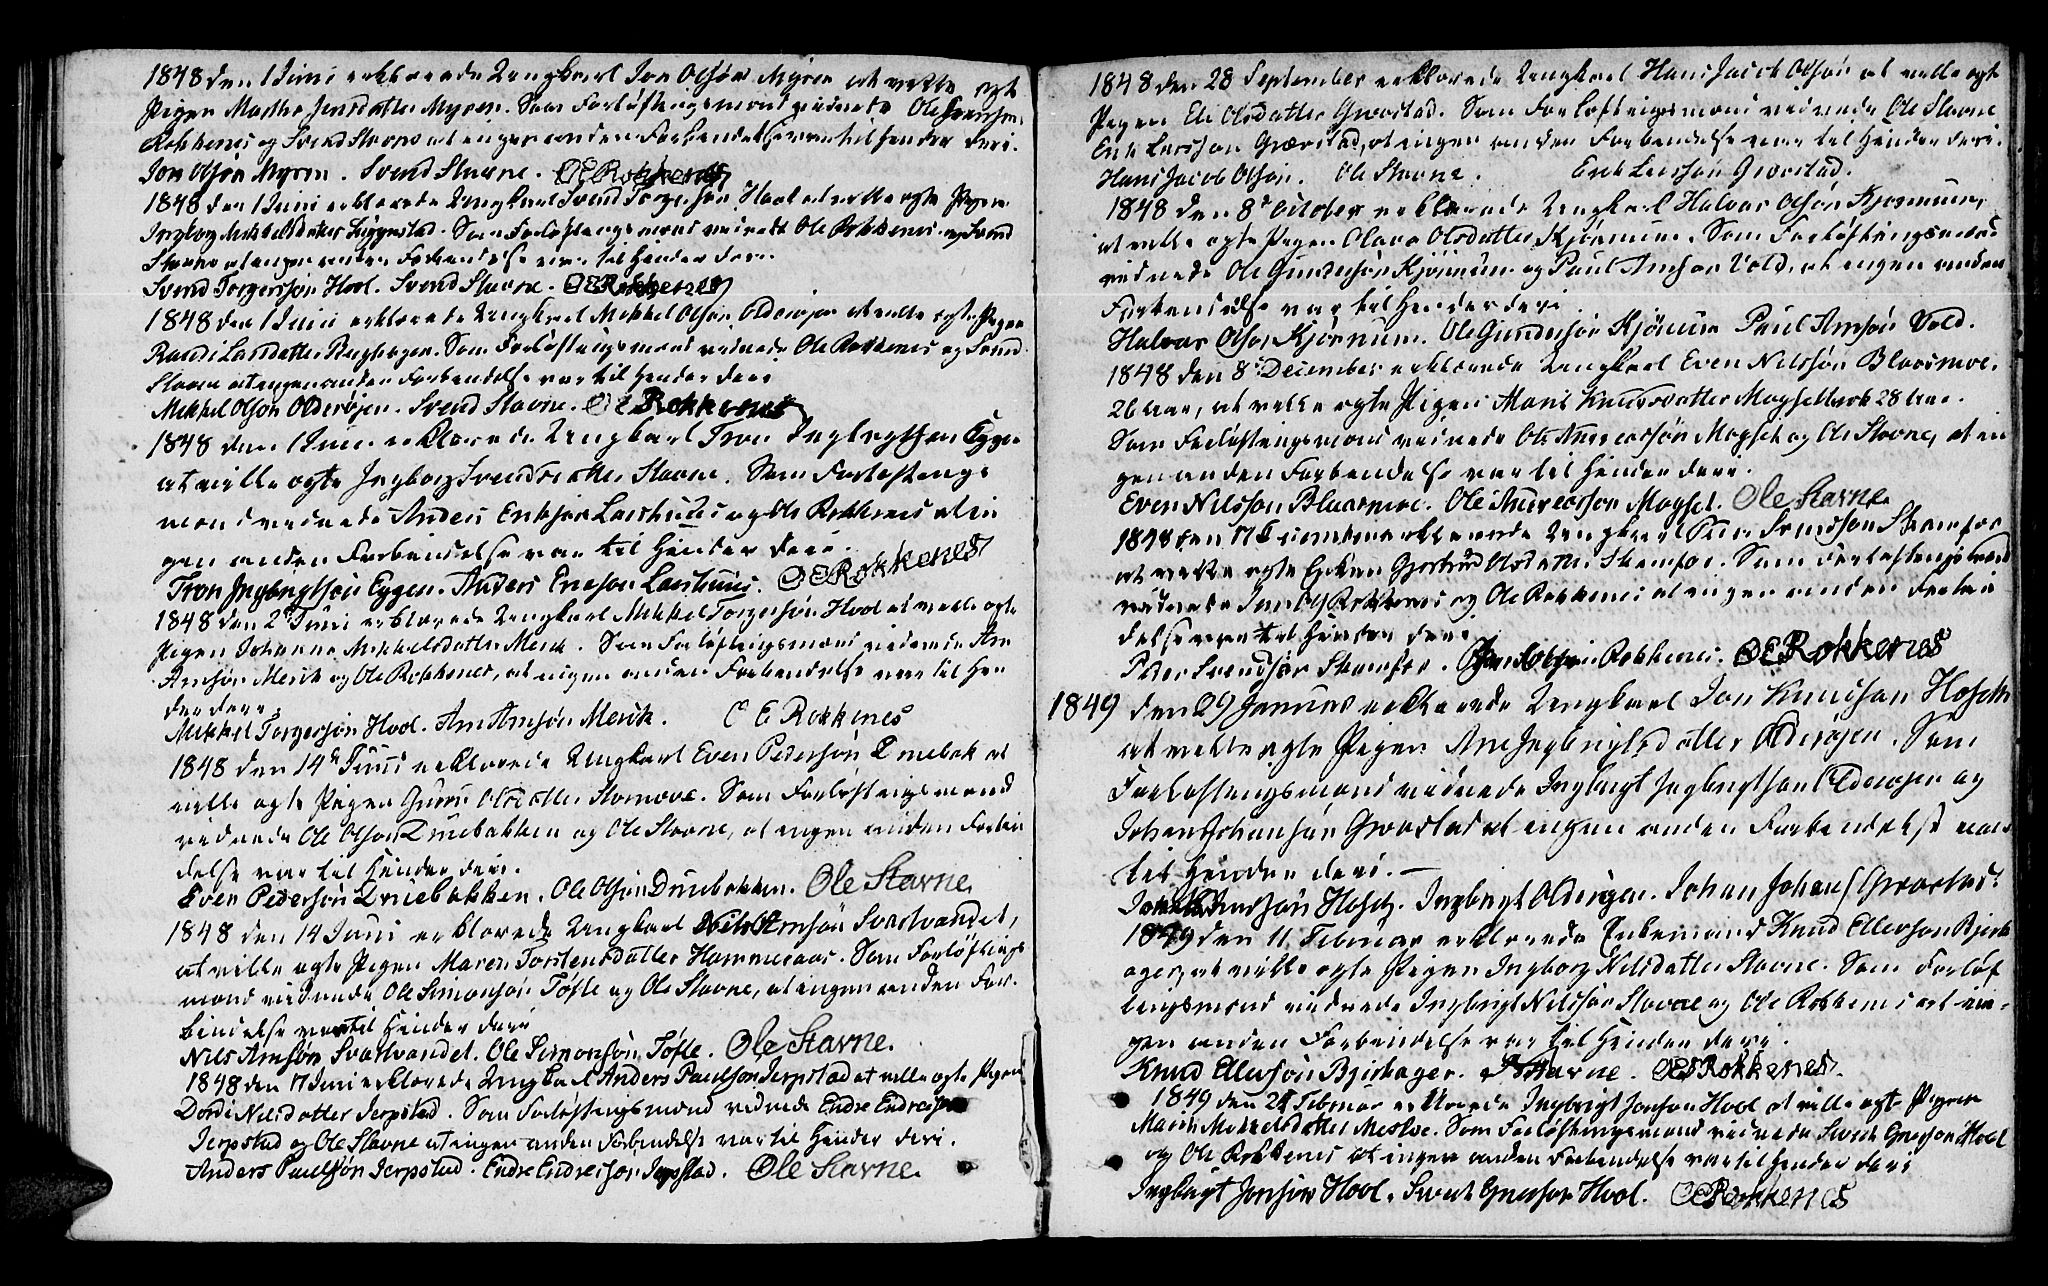 1848 den 1 Juni erklærede Ungkarl Jon Olsøn Myren at ville egte
Pigen Marthe Jensdatter Myren. Som Forløftningsmænd vidnede Ole Evensøn
Rokkenes og Svend Stavne at ingen anden Forbendelse var til Hender deri.
Jon Olsøn Myren. Svend Stavne. O E Rokkenes
1848 den 1 Juni erklærede Ungkarl Svend Torgersøn Hool at ville egte Pigen
Ingbor Mikkelsdatter Siggestad. Som Forløftningsmænd vidnede Ole Rokkenes og Svend
Stavne at ingen anden Forbendelse var til Hender deri.
Svend Torgersøn Hool. Svend Stavne. O E Rokkenes
1848 den 1 Juni erklærede Ungkarl Mekkel Olsøn Olderøjen at ville egte Pigen
Randi Larsdatter Som Forløftningsmænd vidnede Ole Rokkenes og Svend
Stavne at ingen anden Forbendelse var til Hender deri
Mekkel Olsøn Olderøjen. Svend Stavne. O E Rokkenes
1848 den 1 Juni erklærede Ungkarl Tron Ingbrigtsøn Eggen
at ville egte Ingborg Svendsdatter Stavne. Som Forløftnings
mænd vidnede Anders Eriksøn og Ole Rokkenes at in
gen anden Forbindelse var til Hender deri.
Tron Ingbrigtsøn Eggen. Anders Ericsøn O E Rokkenes
1848 den 2 Juni erklærede Ungkarl Mikkel Torgersøn Hool at ville egte
Pigen Johanna Mikkelsdatter Merk. Som Forløftningsmænd vidnede Arn
Arnsøn Merk og Ole Rokkenes, at ingen anden Forbendelse var til Hen
der deri.
Mekkel Torgersøn Hool. Arn Arnsøn Merk. O E Rokkenes
1848 den 14de Juni erklærede Ungkarl Even Pedersøn Druebak at
ville egte Pigen Guru Olsdatter Stomove. Som Forløftningsmænd
vidnede Ole Olsøn Druebakken og Ole Stavne, at ingen anden Forbin
delse var til Hender deri.
Even Pedersøn Druebakken. Ole Olsøn Druebakken. Ole Stavne
1848 den 14 Juni erklærede Ungkarl Nils Arnsøn Svartvandet,
at ville egte Pigen Maren Torstensdatter Hammeraas. Som Forløftnings
mænd vidnede Ole Simonsøn Tøfte og Ole Stavne, at ingen anden For
bindelse var til Hender deri
Nils Arnsøn Svartvandet. Ole Simonsøn Tøfte. Ole Stavne.
1848 den 17 Juni erklærede Ungkarl Anders Paulsøn Jerpstad at ville egte Pigen
Dordi Nilsdatter Jerpstad. Som Forløftningsmænd vidnede Endre Endresøn
Jerpstad og Ole Stavne at ingen anden Forbendelse var til Hender deri.
Anders Paulsøn Jerpstad. Endre Endresøn Jerpstad. Ole Stavne.
1848 den 28 September erklærede Ungkarl Hans Jacob Olsøn at ville egte
Pigen Eli Olsdatter Grovstad. Som Forløftningsmænd vidnede Ole Stavne
Erik Larsøn Grovstad, at ingen anden Forbendelse var til Hender deri.
Hans Jacob Olsøn. Ole Stavne. Erik Larsøn Grovstad.
1848 den 8de October erklærede Ungkarl Halvor Olsøn Kjønnum,
at ville egte Pigen Olava Olsdatter Kjønnum. Som Forløftningsmænd
vidnede Ole Gundersøn Kjønnum og Paul Arnsøn Vold, at ingen anden
Forbendelse var til Hender deri
Halvor Olsøn Kjønnum. Ole Gundersøn Kjønum Paul Arnsøn Vold.
1848 den 8de December erklærede Ungkarl Even Nilssøn Blaasmoe.
26 Aar, at ville egte Pigen Marit Knudsdatter 28 Aar.
Som Forløftningsmænd vidnede Ole Andreassøn Mogset og Ole Stavne, at in
gen anden Forbendelse var til Hender deri.
Even Nilsson Blaasmoe. Ole Andreassøn Mogset. Ole Stavne.
1848 den 17 December erklærede Ungkarl Peder Svendsøn Skamfer
at ville egte Enken Gjertrud Olsdatter Skamfer. Som Forløftningsmænd
vidnede Jon Ols Rokkenes og Ole Rokkenes at ingen anden Forben
delse var til Hender deri
Peder Svendsøn Skamfer. Jon Olsøn Rokkenes. O E Rokkenes
1849 den 29 Januar erklærede Ungkarl Jon Knudsøn Hoseth
at ville egte Pigen Ane Ingbrigtsdatter Olderøjen. Som
Forløftningsmænd vidnede Ingbrigt Ingbrigtsøn Olderøjen og
Johan Johansøn Grovstad at ingen anden Forbendelse var
til Hender deri.—
Jon Knudsøn Hosetz. Ingbrigt Olderøjen. Johan Johans Grovstad.
1849 den 11 Februar erklærede Enkemand Knud Ellevsøn Bjerk
ager, at ville egte Pigen Ingborg Nilsdatter Stavne. Som Forløf
tningsmænd vidnede Ingbrigt Nilssøn Stavne og Ole Rokkenes at in-
gen anden Forbendelse var til Hender deri.
Knud Ellevsøn Bjerkager. Stavne. O E Rokkenes.
1849 den 24 Februar erklærede Ingbrigt Jonsøn Hool at ville egte Pigen
Marit Mekkelsdatter Mesloe. Som Forløftningsmænd vidnede Sivert Hool
og Ole Rokkenes at ingen anden Forbendelse var til Hender deri
Ingbrigt Jonsøn Hool. Sivert Hool. O E Rokkenes